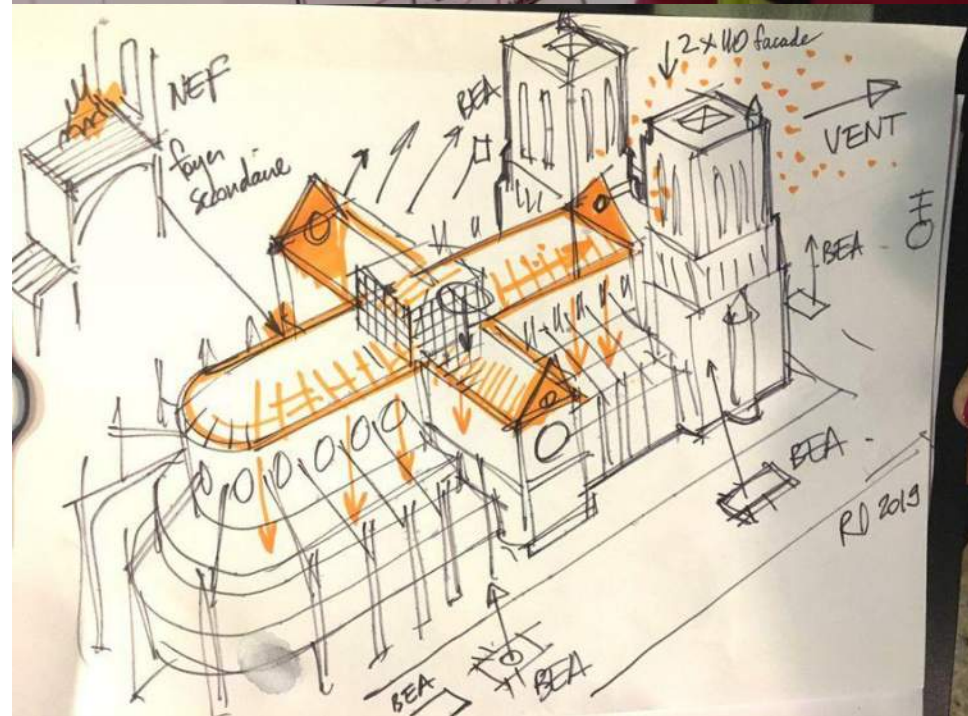 NEF
foyer
secondaire
BEA
2 x 40 facade
VENT
BEA
BEA
RD 2019
BEA
BEA